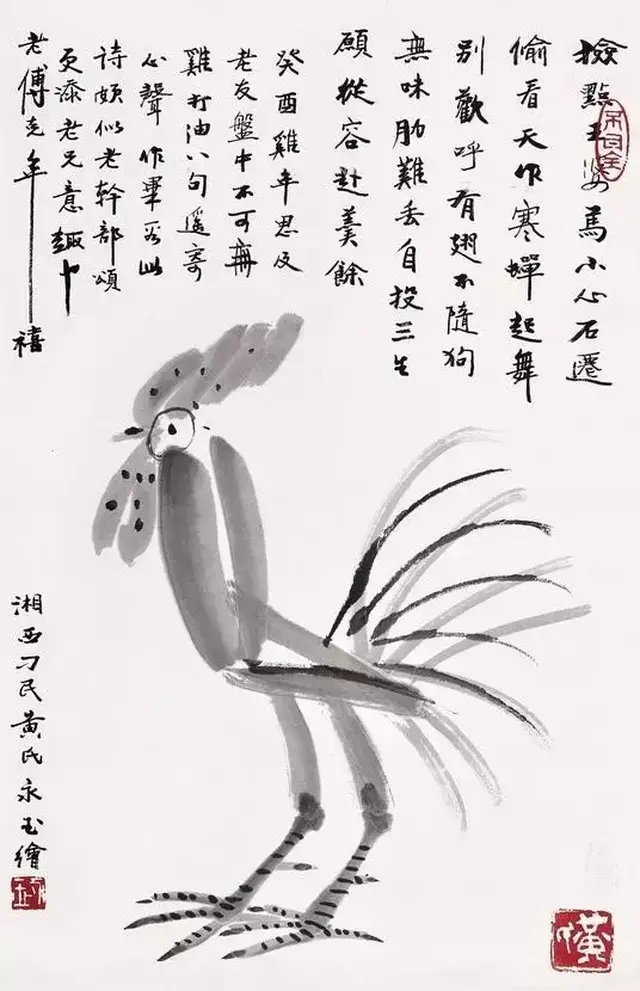 撿點王婆馬小心石遷
偷看天作寒蟬起舞
別歡呼有翅不隨狗
無味肋難丟自投三生
願從容赴羹餘
癸酉雞年思及
老友盤中不可無
雞打油八句遙寄
心聲作畢此
詩頗似老幹部頌
更添老兄意趣卜
老傅克年禧
湘西刁民黃氏永玉繪
黃